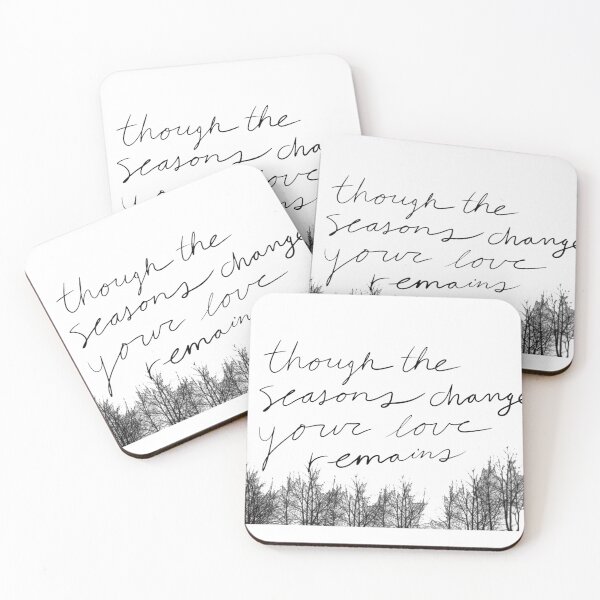 though the
seasons
love
though the
seasons change
your love
remains
though the
seasons change
your love
remains
though the
seasons change
your love
remains